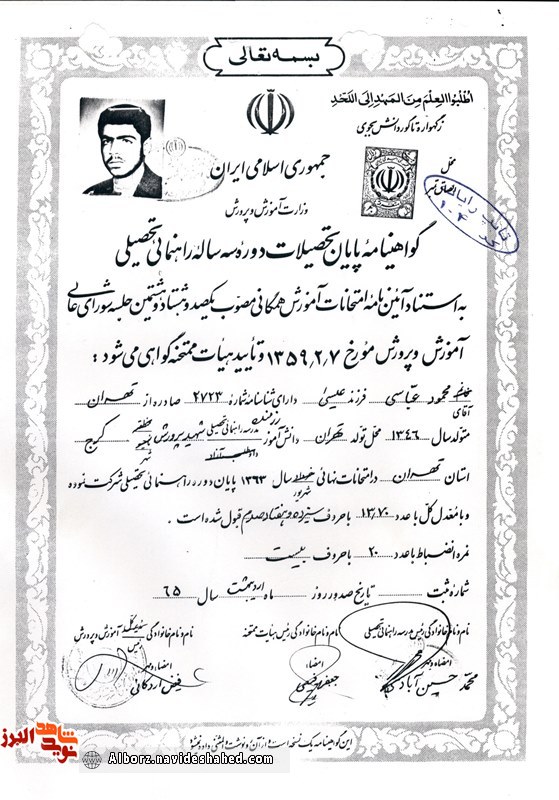 بسمه تعالی
اطلبوا العلم من المهد الی اللحد
زگهواره تا گور دانش بجوی
جمهوری اسلامی ایران
وزارت آموزش و پرورش
محل
گواهینامهٔ پایان تحصیلات دورهٔ سه سالهٔ راهنمائی تحصیلی
به استناد آئین نامهٔ امتحانات آموزش همگانی مصوب یکصد و هشتاد و هشتمین جلسهٔ شورای عالی
آموزش و پرورش مورخ ۱۳۵۹,۲,۷ و تأیید هیأت ممتحنه گواهی می شود :
خانم آقای محمود عباسی فرزند عیسی دارای شناسنامهٔ شمارهٔ ۲۷۲۳ صادره از تهران
متولد سال ۱۳۴۶ محل تولد تهران دانش آموز مدرسه راهنمائی تحصیلی شهید پرورش کرج
داوطلب آزاد
استان تهران در امتحانات نهائی خرداد شهریور سال ۱۳۶۳ پایان دوره راهنمائی تحصیلی شرکت نموده
و با معدل کل با عدد ۱۳,۷۰ با حروف سیزده و هفتاد صدم قبول شده است .
نمره انضباط با عدد ۲۰ با حروف بیست
شمارهٔ ثبت تاریخ صدور روز ماه اردیبهشت سال ۶۵
نام و نام خانوادگی رئیس مدرسه راهنمائی تحصیلی نام و نام خانوادگی رئیس هیأت ممتحنه نام و نام خانوادگی آموزش و پرورش
امضاء و مهر امضاء امضاء و مهر
محمد حسین آباد
این گواهینامه یک نسخه است و از آن رونوشت و المثنی داده نمیشود
نوید شاهد البرز
Alborz.navideshahed.com